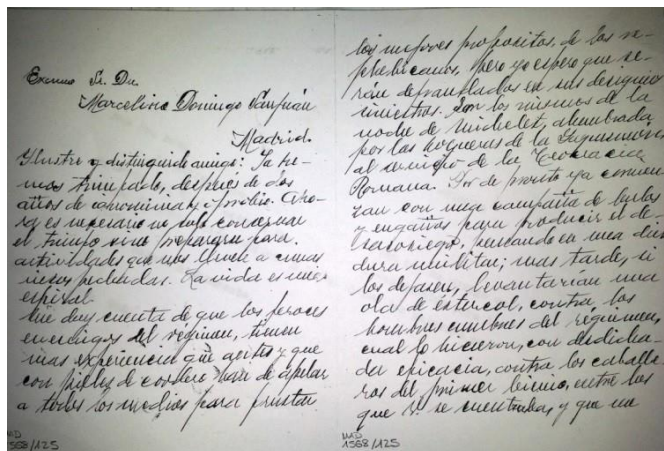 Excmo Sr. Dn.
Marcelino Domingo Sanjuán
Madrid.
Ilustre y distinguido amigo: Ya he-
mos triunfado, después de dos
años de y oprobio. Aho-
ra es necesario no solo conservar
el triunfo sino prepararse para
actividades que nos lleven a cimas
La vida es una
espiral.
Me doy cuenta de que los feroces
enemigos del régimen, tienen
mas experiencia que antes y que
con pieles de cordero han de apelar
a todos los medios para frustrar
MD
1568/125
los mejores propositos, de los re-
publicanos, pero yo espero que se-
rán defraudados en sus designios
siniestros. Son los mismos de la
noche de Michelet, alumbrada
por las hogueras de la Inquisición
al servicio de la Teocracia
Romana. Por de pronto ya comien-
zan con una campaña de burlas
y engaños para producir el de-
sasosiego, pensando en una dicta-
dura militar; mas tarde, si
los dejasen, levantarían una
ola de estiercol, contra los
hombres cumbres del régimen,
cual lo hicieron, con desdicha-
da eficacia, contra los caballe-
ros del primer bienio, entre los
que V. se encontraba, y que no
MD
1568/125